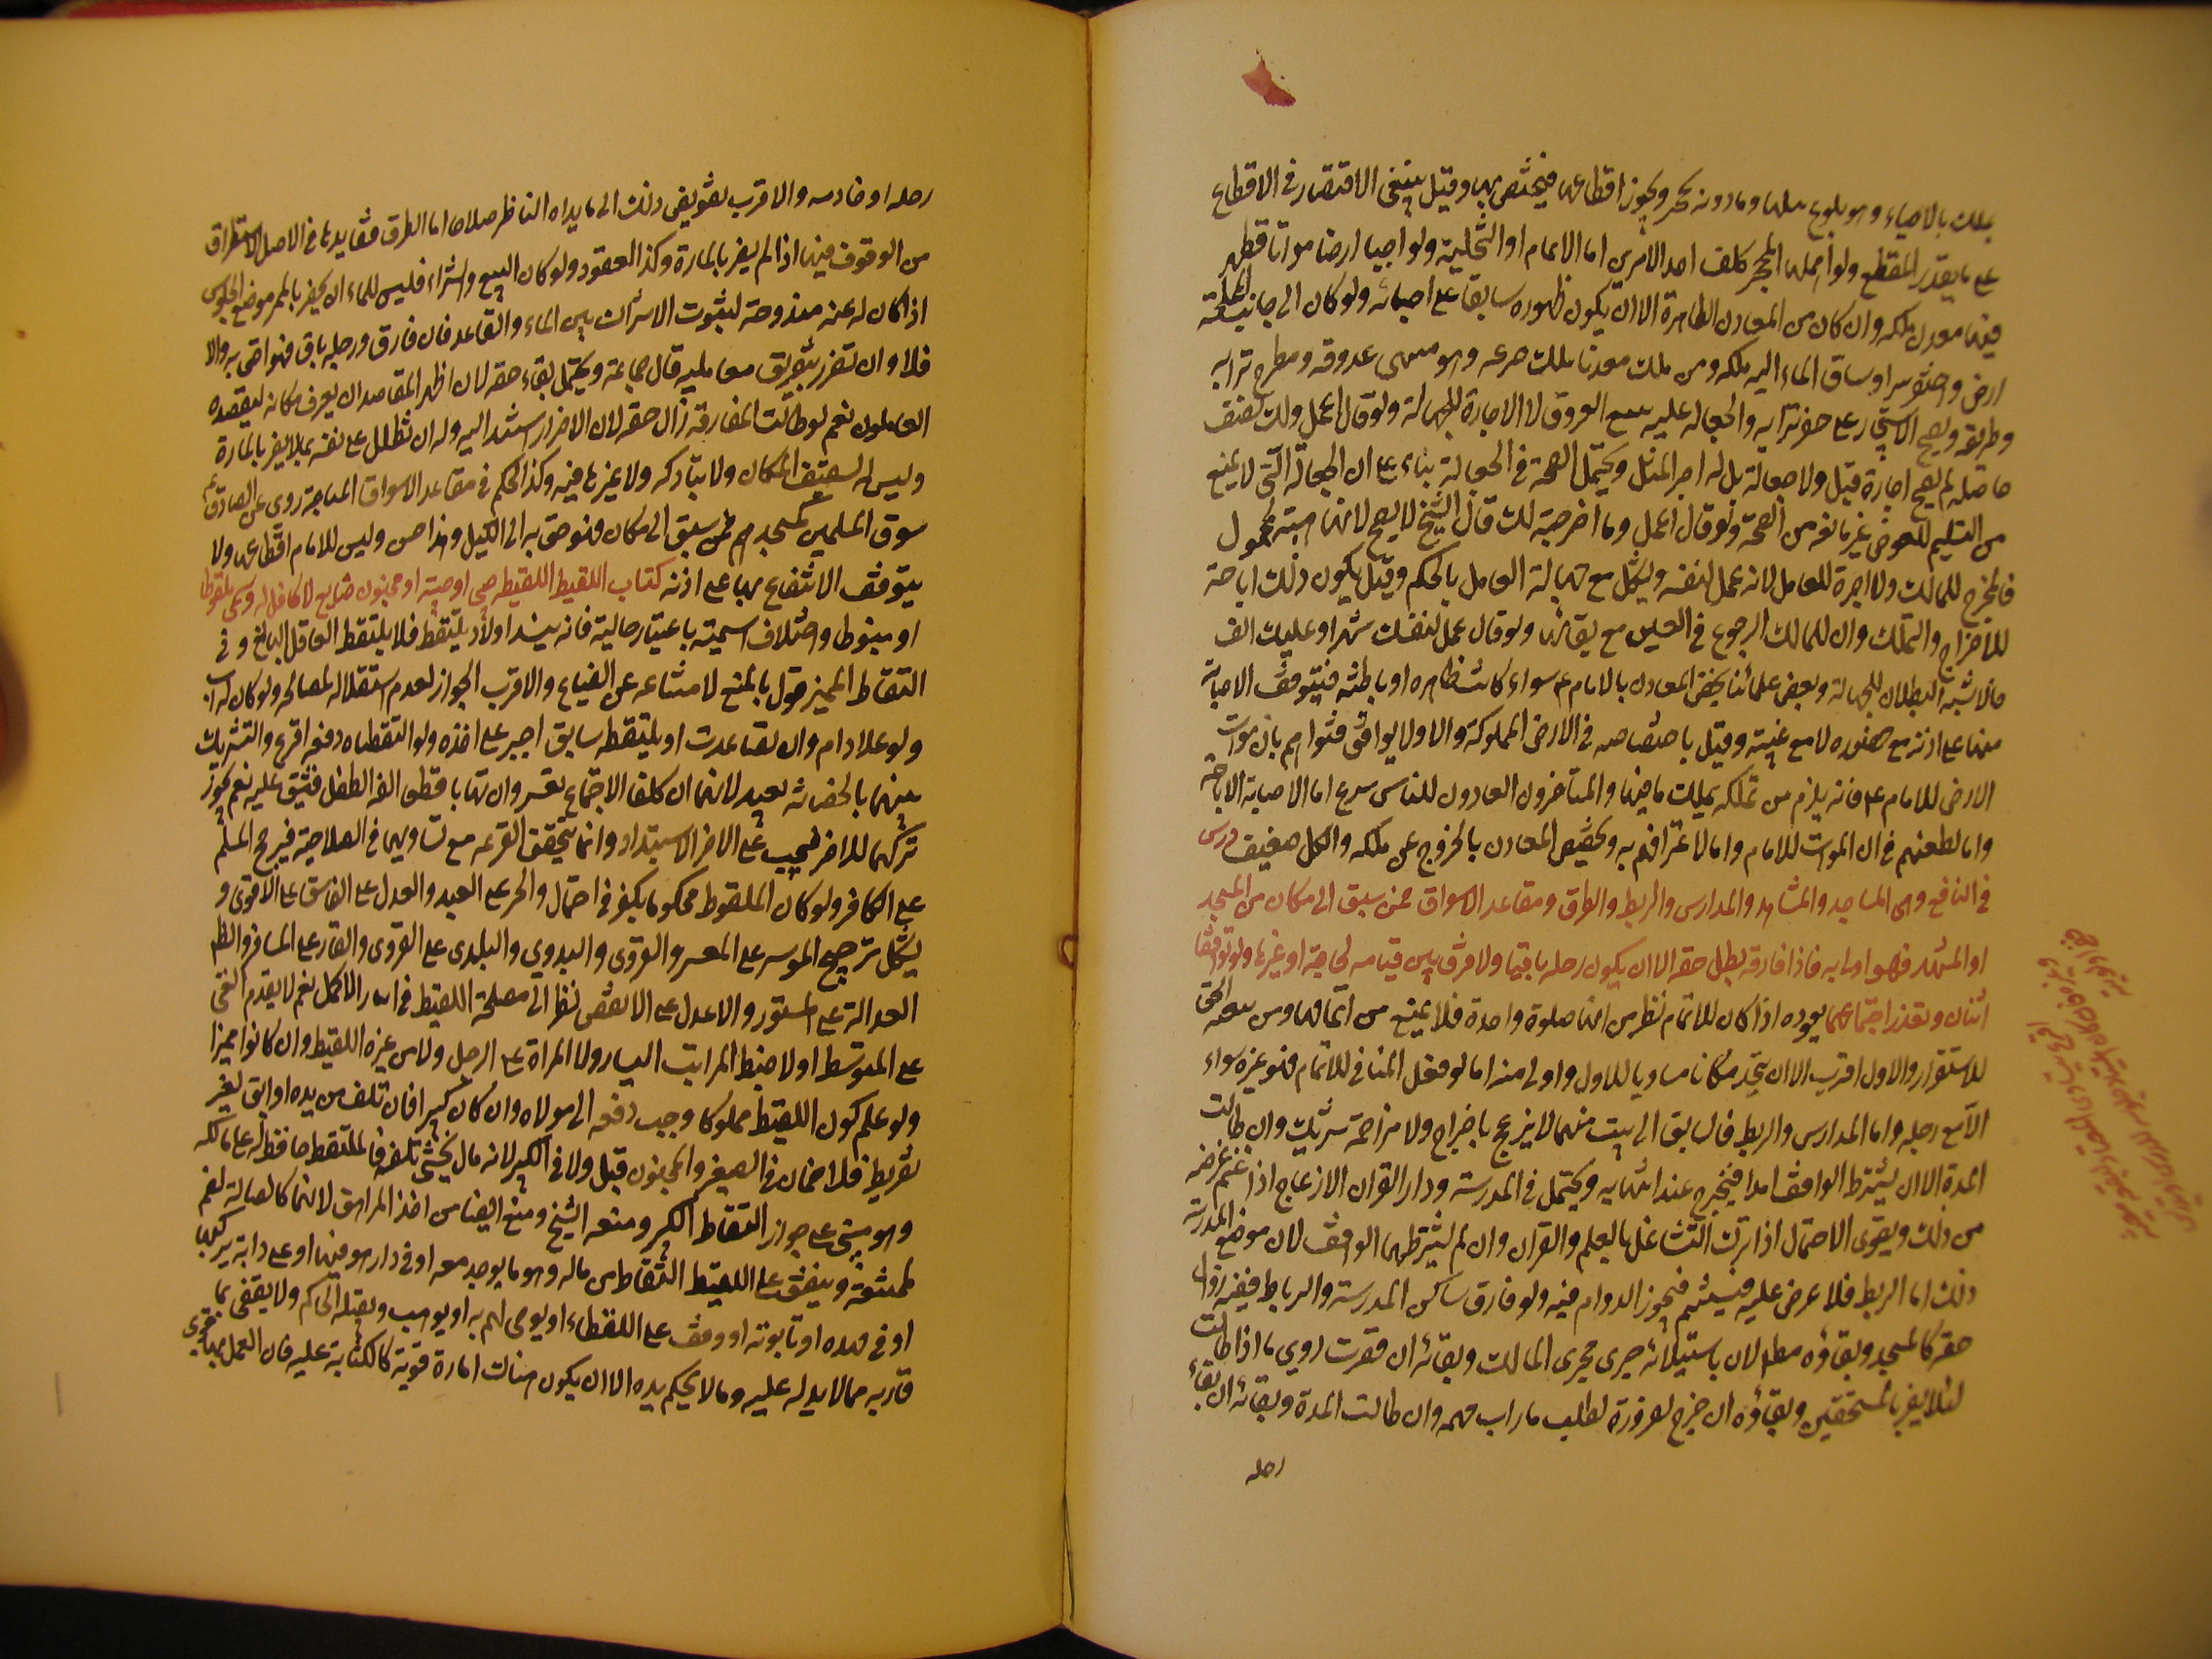 يملك بالاحياء وهو بلوغ نيلها وما دونه تحجر ويجوز اقطاعها فيختص بها وقيل ينبغي الاقتصار في الاقطاع
على ما يقدر المقطع ولو اهملها المحجر كلف احد الامرين اما الاتمام او التخلية ولو احيا ارضا مواتا فظهر
فيها معدن ملكه وان كان من المعادن الظاهرة الا ان يكون ظهوره سابقا على احيائه ولو كان الى جانب المملحة
ارض واحتفر بئرا وساق الماء اليه ملكه ومن ملك معدنا ملك حريمه وهو منتهى عروقه ومطرح ترابه
وطريقه ويصح الاستيجار على حفره وترابه والجعالة عليه لا الاجارة للجهالة ولو قال اعمل ولك نصف
حاصله لم يصح اجارة قيل ولا جعالة بل له اجر المثل ويحتمل الصحة في الجعالة بناء على ان الجهالة التي لا تمنع
من التسليم للعوض غير مانعه من الصحة ولو قال اعمل وما اخرجته لك قال الشيخ لا يصح لانها هبة مجهول
فالمخرج للمالك ولا اجرة للعامل لانه عمل لنفسه ويشكل مع جهالة العامل بالحكم وقيل يكون ذلك اباحة
للاخراج والتملك وان للمالك الرجوع في العين مع بقائها ولو قال اعمل لنفسك شهرا وعليك الف
فالاشبه البطلان للجهالة وبعض علمائنا يخص المعادن بالامام ع سواء كانت ظاهره او باطنه فيتوقف الاصابة
منها على اذنه مع حضوره لا مع غيبته وقيل باختصاصه في الارض المملوكة والا ولا يوافق فتواهم بان موات
الارض للامام ع فانه يلزم من تملكه تملك ما فيها والمتأخرون المعادن للناس شرع اما الاصابة الاباحة
واما لطعنهم في ان الموات للامام واما لاعترافهم به وتخصيص المعادن بالخروج عن ملكه والكل ضعيف درس
في المنافع وهي المساجد والمشاهد والمدارس والربط والطرق ومقاعد الاسواق فمن سبق الى مكان من المسجد
او المشهد فهو اولى به فاذا فارقه بطل حقه الا ان يكون رحله باقيا ولا فرق بين قيامه لحاجة او غيرها ولو توافقا
اثنان وتعذر اجتماعهما يعوده اذا كان للاتمام نظر من انها صلوة واحدة فلا يمنع من اتمامها ومن الحق
للاستقرار والاول اقرب الا ان يجد مكانا مساويا للاول واولى منه اما لو فعل المنافي للاتمام فهو وغيره سواء
الا مع رحله واما المدارس والربط فالسابق الى بيت منهما لا يزعج باخراج ولا مزاحمة شريك وان طالت
المدة الا ان يشترط الواقف امدا فيخرج عند انتهائه ويحتمل في المدرسة ودار القران الازعاج اذا تم غرضه
من ذلك ويقوى الاحتمال اذا ترك التشاغل بالعلم والقران وان لم يشترطهما الواقف لان موضع المدرسة
ذلك اما الربط فلا غرض عليه فيجوز الدوام فيه ولو فارق ساكن المدرسة والرباط ففيه زوال
حقه كالمسجد وبقاؤه مطلقا لان باستيلائه جرى مجرى المالك وبقائه ان قصرت دون ما اذا طالت
لئلا يضر بالمستحقين وبقاؤه ان خرج لضرورة لطلب مارب مهمه وان طالت المدة وبقائه ان بقاء
رحله
رحله او خادمه والاقرب تفويض ذلك الى ما يراه الناظر صلاحا اما الطرق ففايدتها في الاصل الاستطراق
من الوقوف فيها اذا لم يضر بالمارة وكذا العقود ولو كان البيع والشراء فليس للماء ان يحضر بالممر موضع الجلوس
اذا كان له عنه مندوحة لثبوت الاشتراك بين الماء والقاعد فان فارق ورحله باق فهو احق به والا
فلا وان تضرر بتفريق معامليه قال جماعة ويحتمل بقاء حقه لان اظهر المقاصد ان يعرف مكانه ليقصده
العاملون نعم لو طالت المفارقة زال حقه لان الاضرار استند اليه وله ان يظلل على نفسه بما لا يضر بالمارة
وليس له تسقيف المكان ولا بناء دكه ولا غيرها فيه وكذا الحكم في مقاعد الاسواق المباحة روى عن الصادق ع
سوق المسلمين كمسجدهم فمن سبق الى مكان فهو حق به الى الليل وهذا حسن وليس للامام اقطاعها ولا
يتوقف الانتفاع بها على اذنه كتاب اللقيط اللقيطه صبي او صبية او مجنون ضايع لا كافل له ويسمى ملقوطا
او منبوذا واختلاف اسميته باعتبار حاليه فانه ينبذ اولا ويلتقط فلا يلتقط العاقل البالغ وفي
التقاط المميز قول بالمنع لامتناعه عن الضياع والاقرب الجواز لعدم استقلاله لمصالحه ولو كان له اب
ولو علا او ام وان تصاعدت او يلتقطه سابق اجبر على اخذه ولو التقطاه دفعة اقرع والتشريك
بينهما بالحضانة بعيد لانهما ان كلفا الاجتماع تعسر وان تهايا قطعا الفا الطفل فيشق عليه نعم يجوز
تركهما للاخر فيجب على الاخر الاستبداد وانما يتحقق القرعه مع تساويهما في الصلاحية فيرجح المسلم
على الكافر ولو كان الملقوط محكوما بكفره في احتمال والحر على العبد والعدل على الفاسق على الاقوى و
يشكل ترجيح الموسر على المعسر والقروي والبدوي والبلدي على القروي والقار على المسافر والظاهر
العدالة على المستور والاعدل على الانقص نظرا الى مصلحة اللقيط في ايثار الاكمل نعم لا يقدم الغني
على المتوسط اولا ضبط لمراتب اليسار ولا المراة على الرجل ولا من غيره اللقيط وان كان مميزا
ولو علم كون اللقيط مملوكا وجب دفعه الى مولاه وان كان كبيرا فان تلف من يده او ابق لغير
تفريط فلا ضمان في الصغير والمجنون قيل ولا في الكبير لانه مال يخشى تلفه فالملتقط حافظ له على مالكه
وهو مبني على جواز التقاط الكبير ومنعه الشيخ ومنع ايضا من اخذ المراهق لانهما كالضالة نعم
وينفق على اللقيط الملتقط من ماله وهو ما يوجد معه او في دار هو فيها او على دابة يركبها
او في مهده او تابوته او وقف على اللقطاء او يوصى لهم به او يوهب ويقبله الحاكم ولا يقضى بما
قاربه مما لا يد له عليه وما لا يحكم يده الا ان يكون هناك امارة قوية كالكتابة عليه فان العمل بها قوي